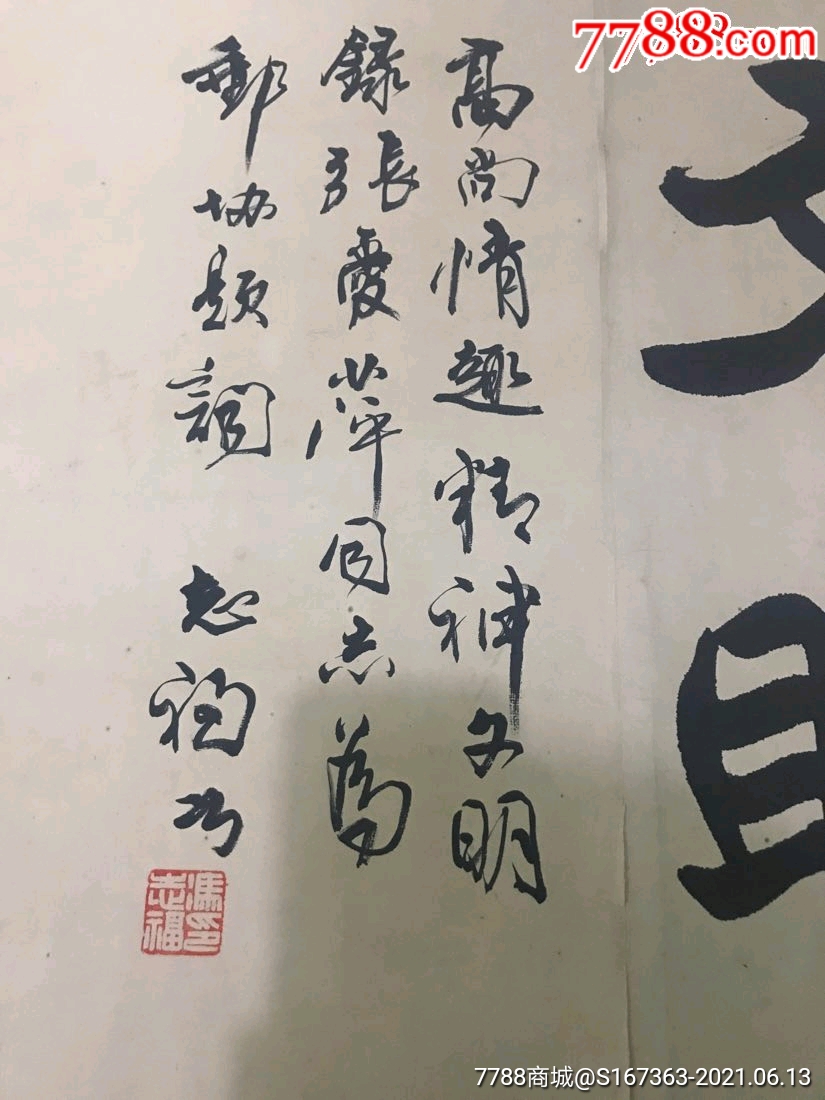 7788.com
高尚情趣精神文明
錄張愛萍同志為
郵協題詞 志福书
馮印志福
7788商城@S167363-2021.06.13